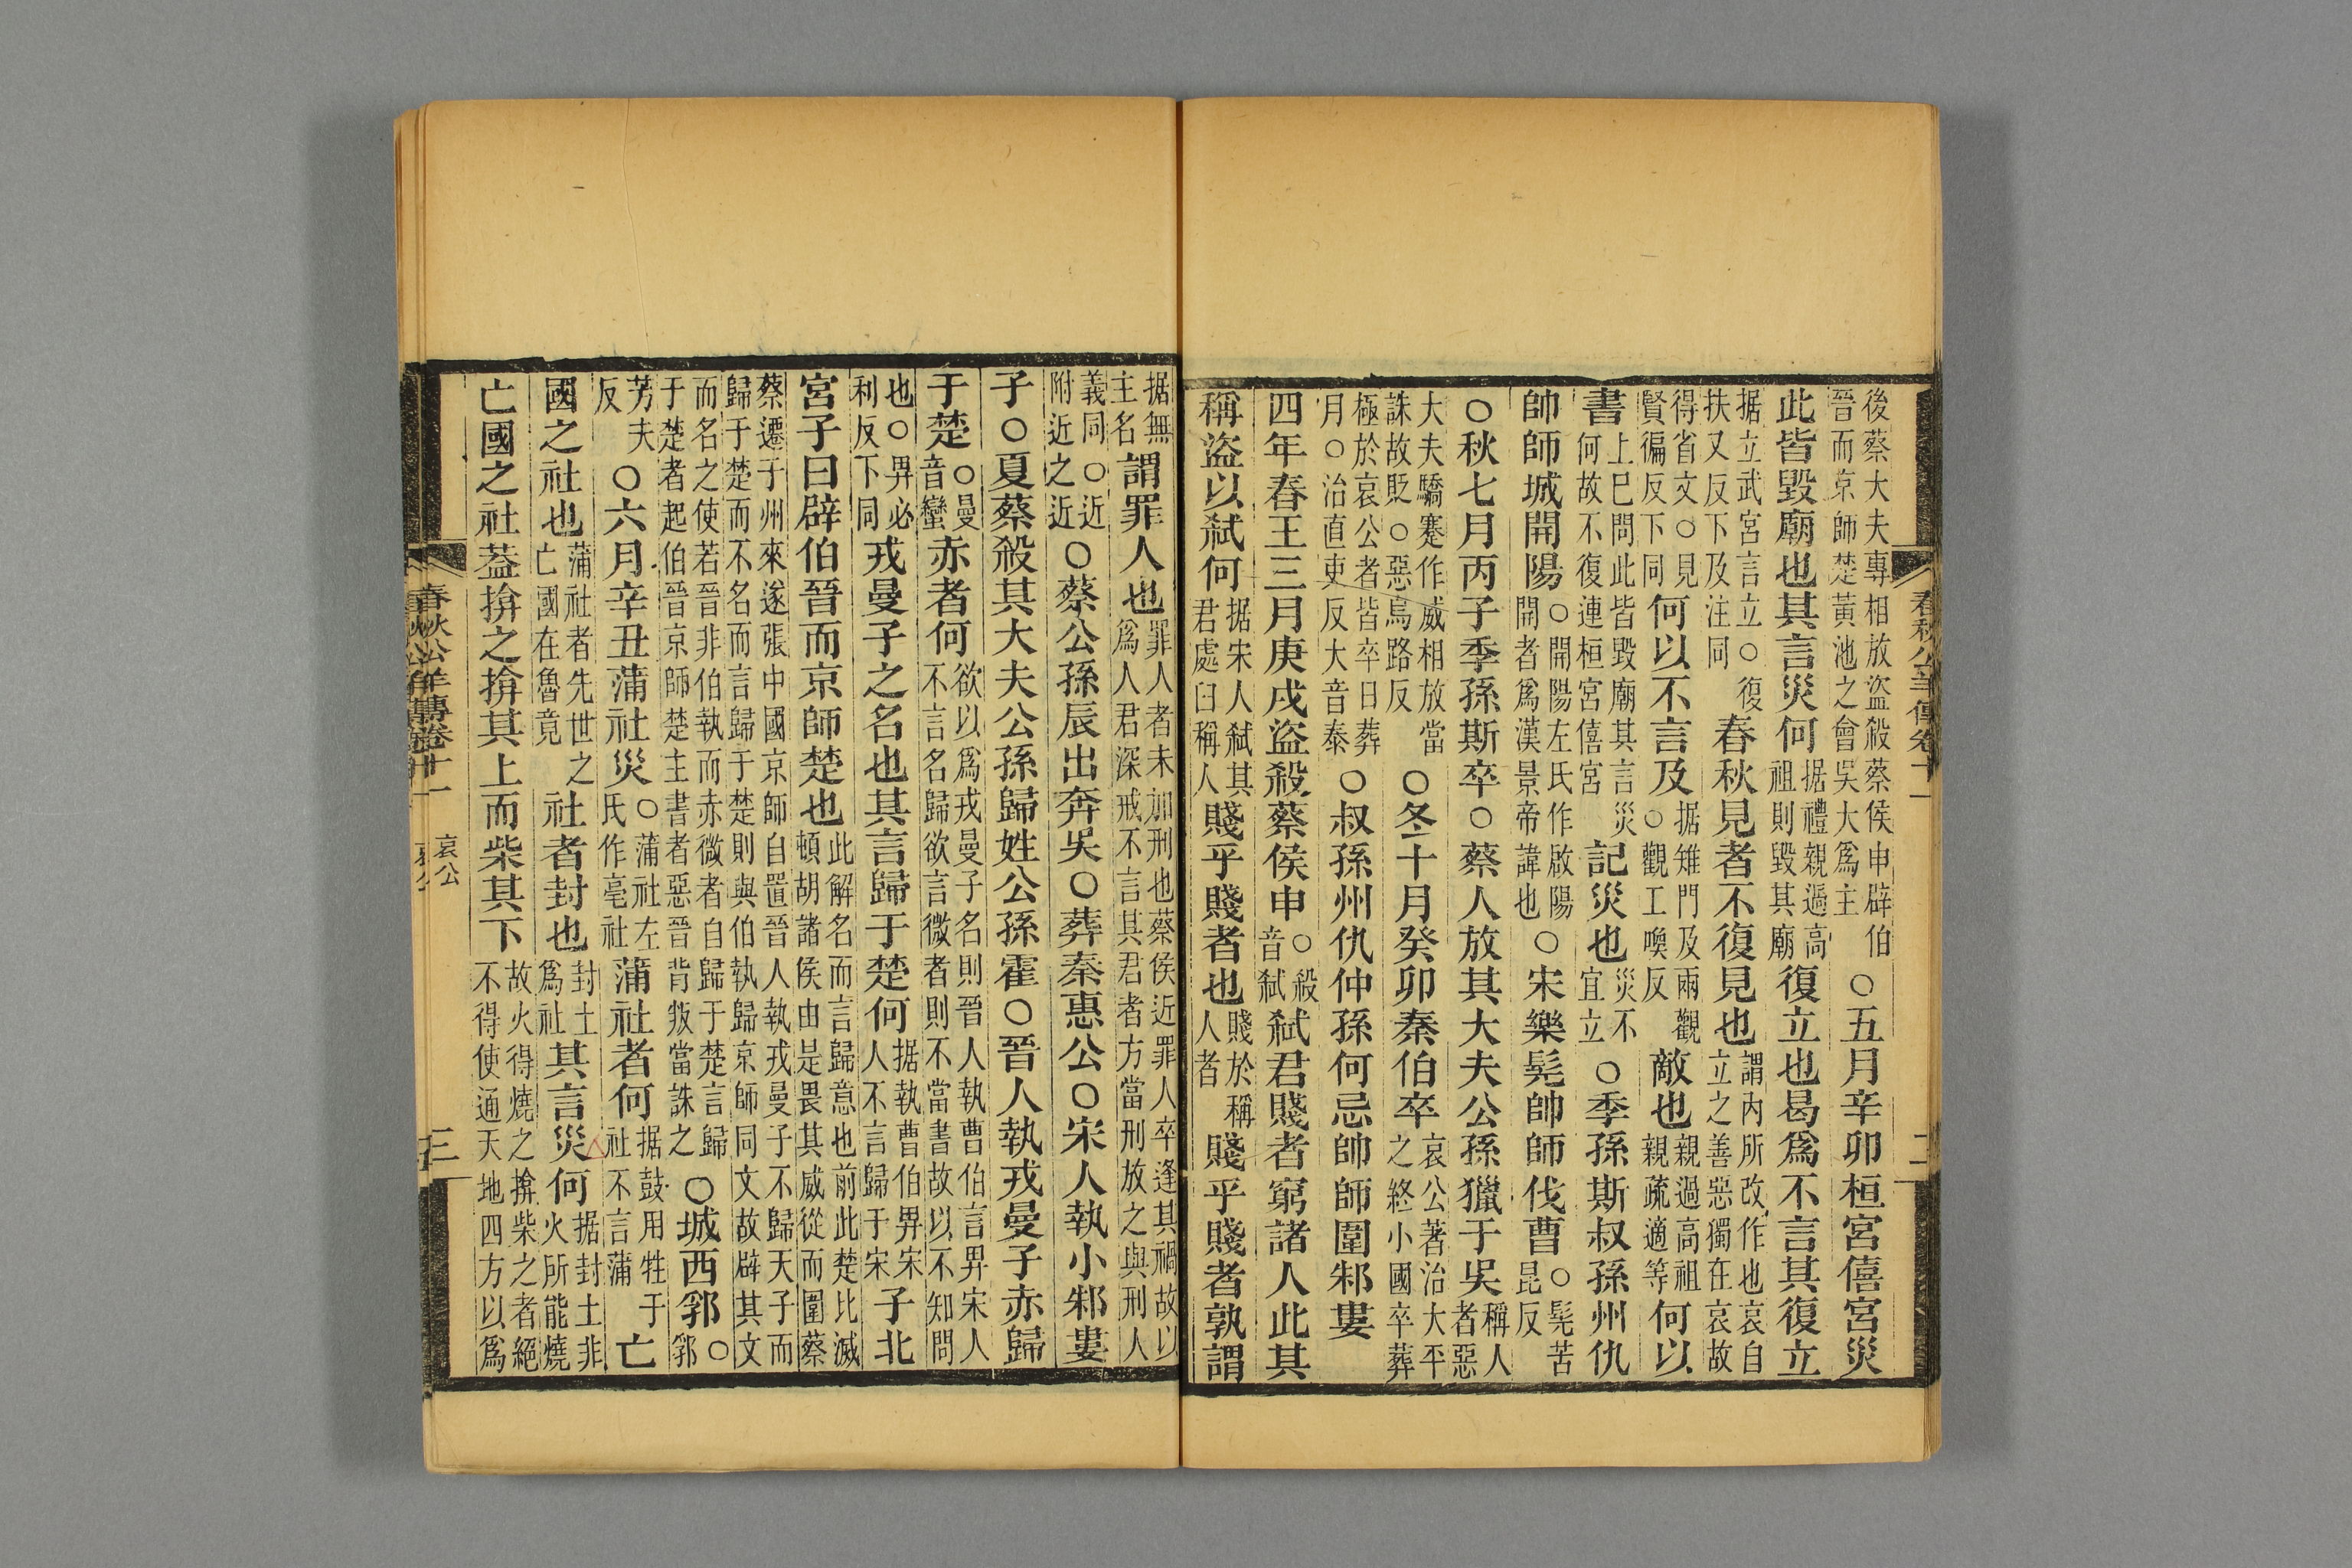 後蔡大夫專相放盜殺蔡侯申辟伯晉而京師楚黃池之會吳大爲主○五月辛卯桓宮僖宮災
此皆毀廟也其言災何据禮親過高祖則毀其廟復立也曷爲不言其復立
据立武宮言立○復扶又反下及注同春秋見者不復見也謂內所改作也哀自立之善惡獨在哀故
得省文○見賢徧反下同何以不言及据雉門及兩觀○觀工喚反敵也親過高祖親疏適等何以
書上巳問此皆毀廟其言災何故不復連桓宮僖宮記災也災不宜立○季孫斯叔孫州仇
帥師城開陽○開陽左氏作啟陽開者爲漢景帝諱也○宋樂髡帥師伐曹○髡苦昆反
○秋七月丙子季孫斯卒○蔡人放其大夫公孫獵于吳稱人者惡
大夫驕蹇作威相放當誅故貶○惡烏路反○冬十月癸卯秦伯卒哀公著治大平之終小國卒葬
極於哀公者皆卒日葬月○治直吏反大音泰○叔孫州仇仲孫何忌帥師圍邾婁
四年春王三月庚戌盜殺蔡侯申○殺音弑弑君賤者窮諸人此其
稱盜以弑何据宋人弑其君處臼稱人賤乎賤者也賤於稱人者賤乎賤者孰謂
春秋公羊傳卷十一
二
据無主名謂罪人也罪人者未加刑也蔡侯近罪人卒逢其禍故以爲人君深戒不言其君者方當刑放之與刑人
義同○近附近之近○蔡公孫辰出奔吳○葬秦惠公○宋人執小邾婁
子○夏蔡殺其大夫公孫歸姓公孫霍○晉人執戎曼子赤歸
于楚○曼音蠻赤者何欲以爲戎曼子名則晉人執曹伯言畀宋人不言名歸欲言微者則不當書故以不知問
也○畀必利反下同戎曼子之名也其言歸于楚何据執曹伯畀宋人不言歸于宋子北
宮子曰辟伯晉而京師楚也此解名而言歸意也前此楚比滅頓胡諸侯由是畏其威從而圍蔡
蔡遷于州來遂張中國京師自置晉人執戎曼子不歸天子而歸于楚而不名而言歸于楚則與伯執歸京師同文故辟其文
而名之使若晉非伯執而赤微者自歸于楚言歸于楚者起伯晉京師楚主書者惡晉背叛當誅之○城西郛○郛
芳夫反○六月辛丑蒲社災○蒲社左氏作亳社蒲社者何据鼓用牲于社不言蒲亡
國之社也蒲社者先世之亡國在魯竟社者封也封土爲社其言災何据封土非火所能燒
亡國之社葢揜之揜其上而柴其下故火得燒之揜柴之者絕不得使通天地四方以爲
春秋公羊傳卷十一
哀公
三